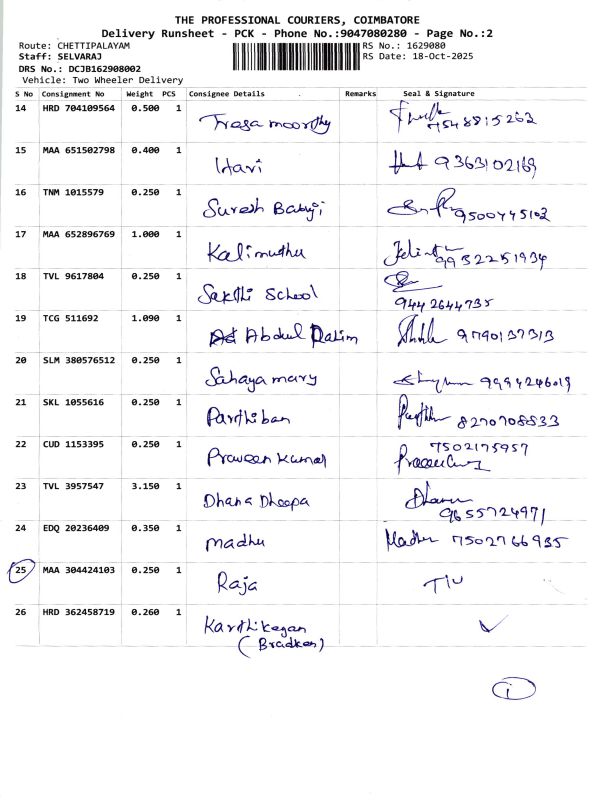 THE PROFESSIONAL COURIERS, COIMBATORE
Delivery Runsheet - PCK - Phone No.:9047080280 - Page No.:2
Route: CHETTIPALAYAM RS No.: 1629080
Staff: SELVARAJ RS Date: 18-Oct-2025
DRS No.: DCJB162908002
Vehicle: Two Wheeler Delivery
S No Consignment No Weight PCS Consignee Details Remarks Seal & Signature
14 HRD 704109564 0.500 1
7548815263
15 MAA 651502798 0.400 1 Hari 9363102169
16 TNM 1015579 0.250 1 Suresh Babyji 9500445102
17 MAA 652896769 1.000 1 Kalimuthu
9952251934
18 TVL 9617804 0.250 1 Sakthi School
9442644735
19 TCG 511692 1.090 1 Abdul Rahim 9790137313
20 SLM 380576512 0.250 1 Sahaya mary 9994246019
21 SKL 1055616 0.250 1 Parthiban 8270708533
22 CUD 1153395 0.250 1 Praveen Kumar 7502175957
23 TVL 3957547 3.150 1 Dhana Dheepa Dhana
9655724971
24 EDQ 20236409 0.350 1 madhu Madhu 7502766935
25 MAA 304424103 0.250 1 Raja
26 HRD 362458719 0.260 1 Karthikeyan
(Bradken)